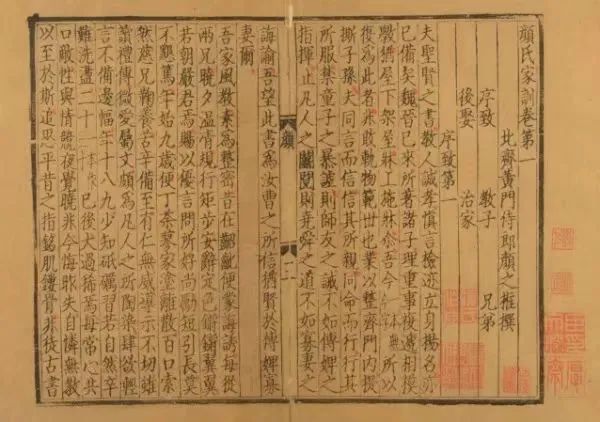 顏氏家訓卷第一
北齊黃門侍郎顏之推撰
序致 教子 兄弟
後娶 治家
序致第一
夫聖賢之書教人誠孝慎言檢迹立身揚名亦
已備矣魏晉已來所著諸子理重事複遞相模
斆猶屋下架屋牀上施牀爾吾今所以
復為此者非敢軌物範世也業以整齊門內提
撕子孫夫同言而信信其所親同命而行行其
所服禁童子之暴謔則師友之誡不如傅婢之
指揮止凡人之鬭鬩則堯舜之道不如寡妻之
顏
誨諭吾望此書為汝曹之所信猶賢於傅婢寡
妻爾
吾家風教素為整密昔在齠齔便蒙誨誘每從
兩兄曉夕溫凊規行矩步安辭定色鏘鏘翼翼
若朝嚴君焉賜以優言問所好尚勵短引長莫
不懇篤年始九歲便丁荼蓼家塗離散百口索
然慈兄鞠養苦辛備至有仁無威導示不切雖
讀禮傳微愛屬文頗為凡人之所陶染肆欲輕
言不備邊幅年十八九少知砥礪習若自然卒
難洗盪二十已後大過稀焉每常心共
口敵性與情競夜覺曉非今悔昨失自憐無教
以至於斯追思平昔之指銘肌鏤骨非徒古書